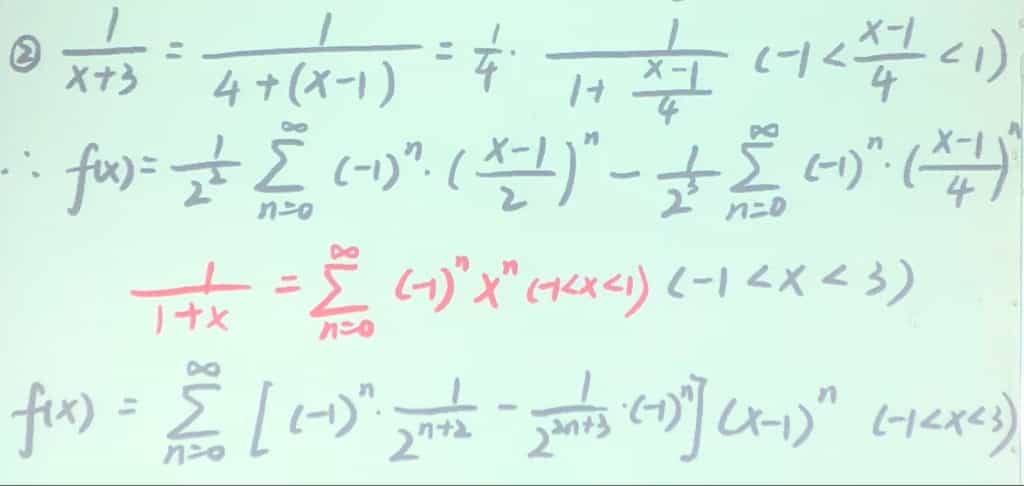 ② 1/(x+3) = 1/(4+(x-1)) = 1/4 · 1/(1+(x-1)/4) (-1<(x-1)/4<1)
∴ f(x)= 1/2² ∑_{n=0}^{∞} (-1)ⁿ·((x-1)/2)ⁿ - 1/2³ ∑_{n=0}^{∞} (-1)ⁿ·((x-1)/4)ⁿ
1/(1+x) = ∑_{n=0}^{∞} (-1)ⁿxⁿ (-1<x<1) (-1<x<3)
f(x) = ∑_{n=0}^{∞} [(-1)ⁿ· 1/2^{n+2} - 1/2^{2n+3}·(-1)ⁿ](x-1)ⁿ (-1<x<3)